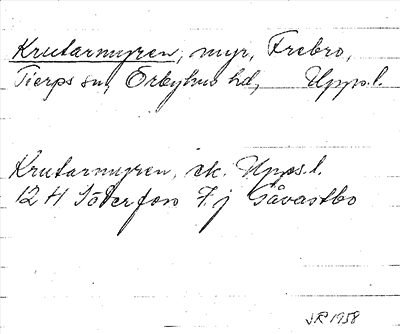 Krutarmyren, myr, Frebro,
Tierps sn, Örbyhus hd, Upps.l.
Krutarmyren, ek. Upps.l.
12 H Söderfors 7 j Gåvastbo
JR 1958